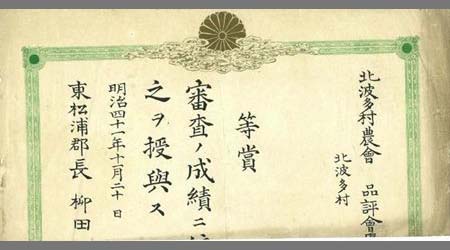 北波多村農會 品評會
北波多村
等賞
審査ノ成績ニ
之ヲ授與ス
明治四十一年十一月二十日
東松浦郡長 柳田